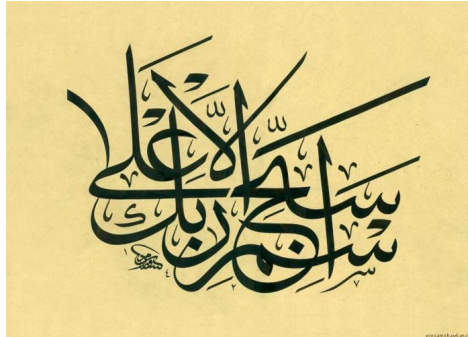 سَبِّحِ اسْمَ رَبِّكَ الْأَعْلَى